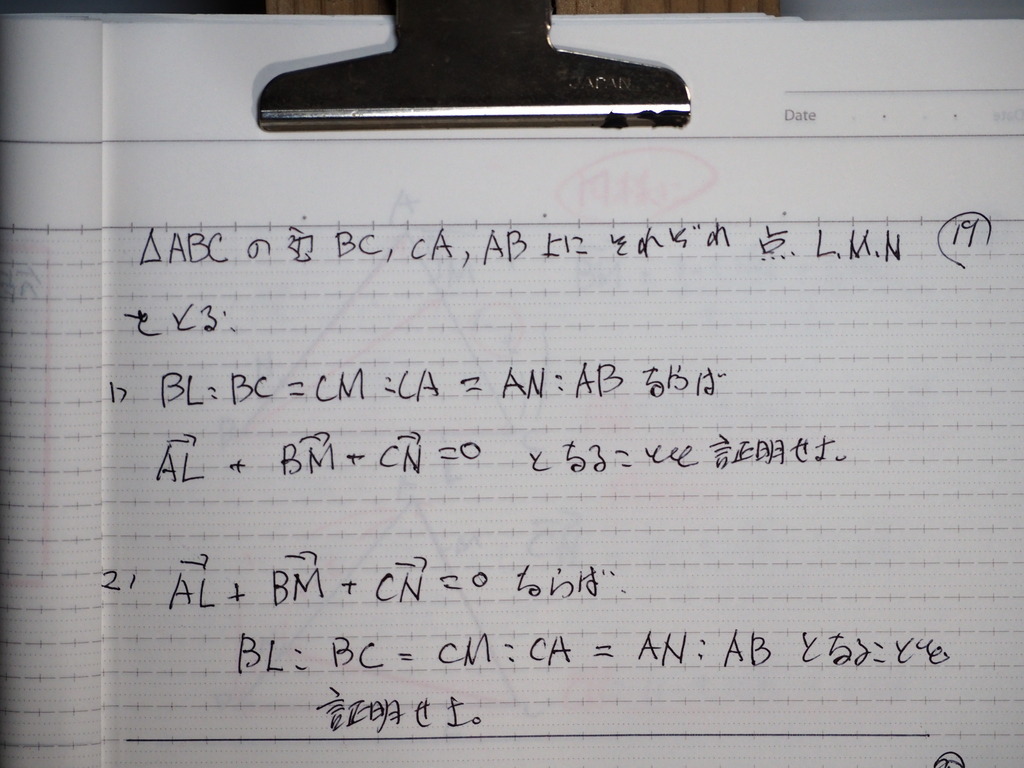 JAPAN
Date
△ABCの辺BC, CA, AB上にそれぞれ点L.M.N ⑲
をとる.
1) BL:BC=CM:CA=AN:ABならば
→AL + →BM + →CN =0 となることを証明せよ。
2) →AL + →BM + →CN =0 ならば.
BL:BC=CM:CA=AN:ABとなることを
証明せよ。